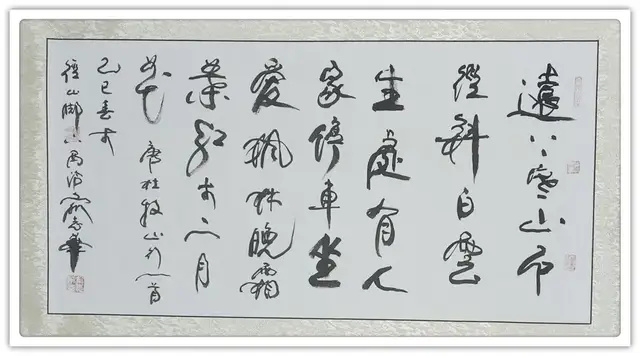 遠上寒山石
徑斜白雲
生處有人
家停車坐
愛楓林晚霜
葉紅於二月
花 唐杜牧山行一首
己巳春於
徑山脚下